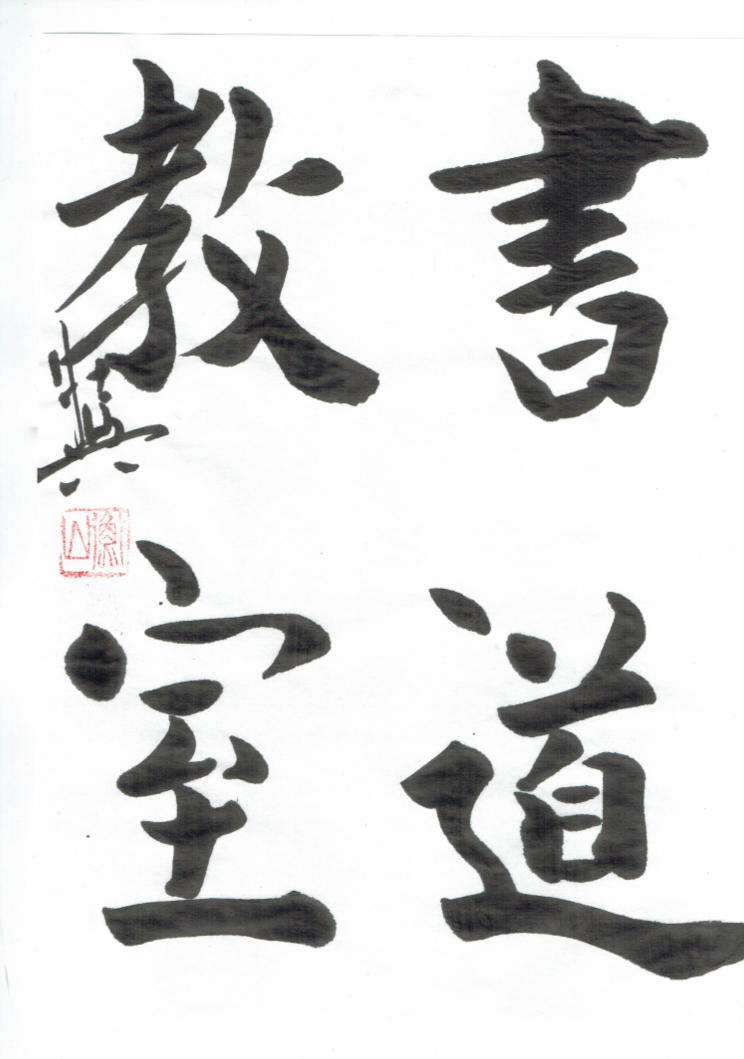 書道
教室